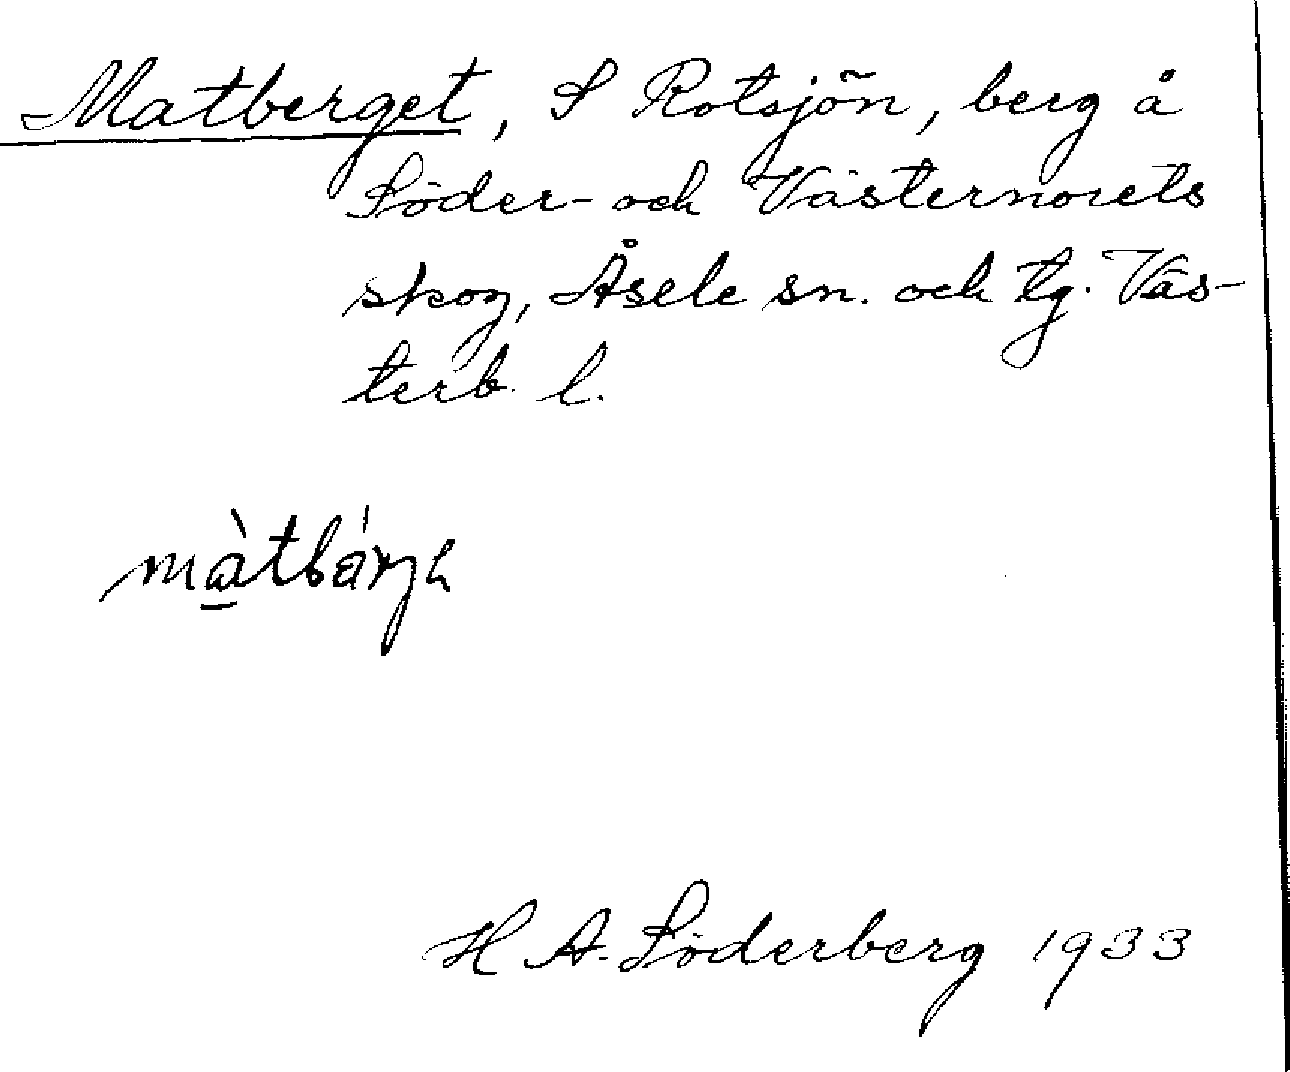 Matberget, S Rotsjön, berg å
Söder- och Västernorets
skog, Åsele sn. och tg. Väs-
terb. l.
màtbárjh
H A. Söderberg 1933